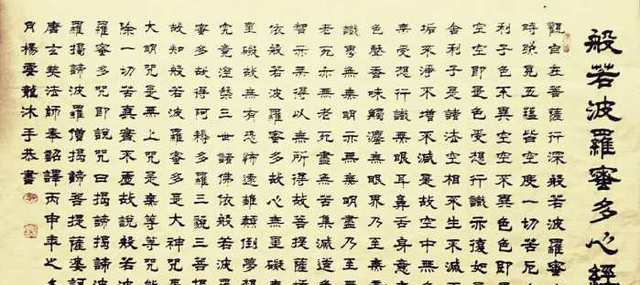 般若波羅蜜多心經
觀自在菩薩行深般若波羅蜜
時照見五蘊皆空度一切苦厄
利子色不異空空不異色色即是
空空即是色受想行識亦復如是
舍利子是諸法空相不生不滅不
垢不淨不增不減是故空中無色
無受想行識無眼耳鼻舌身意
色聲香味觸灋無眼界乃至無意
識界無無明亦無無明盡乃至無
老死亦無老死盡無苦集滅道無
智亦無得以無所得故菩提薩埵
依般若波羅蜜多故心無罣礙無
罣礙故無有恐怖遠離顛倒夢想
究竟涅槃三世諸佛依般若波羅
蜜多故得阿耨多羅三藐三菩提
故知般若波羅蜜多是大神咒
大明咒是無上咒是無等等咒能
除一切苦真實不虛故說般若波
羅蜜多咒即說咒曰揭諦揭諦波
羅揭諦波羅僧揭諦菩提薩婆訶
唐玄奘法師奉詔譯丙申年之
月楊雲龍沐手恭書